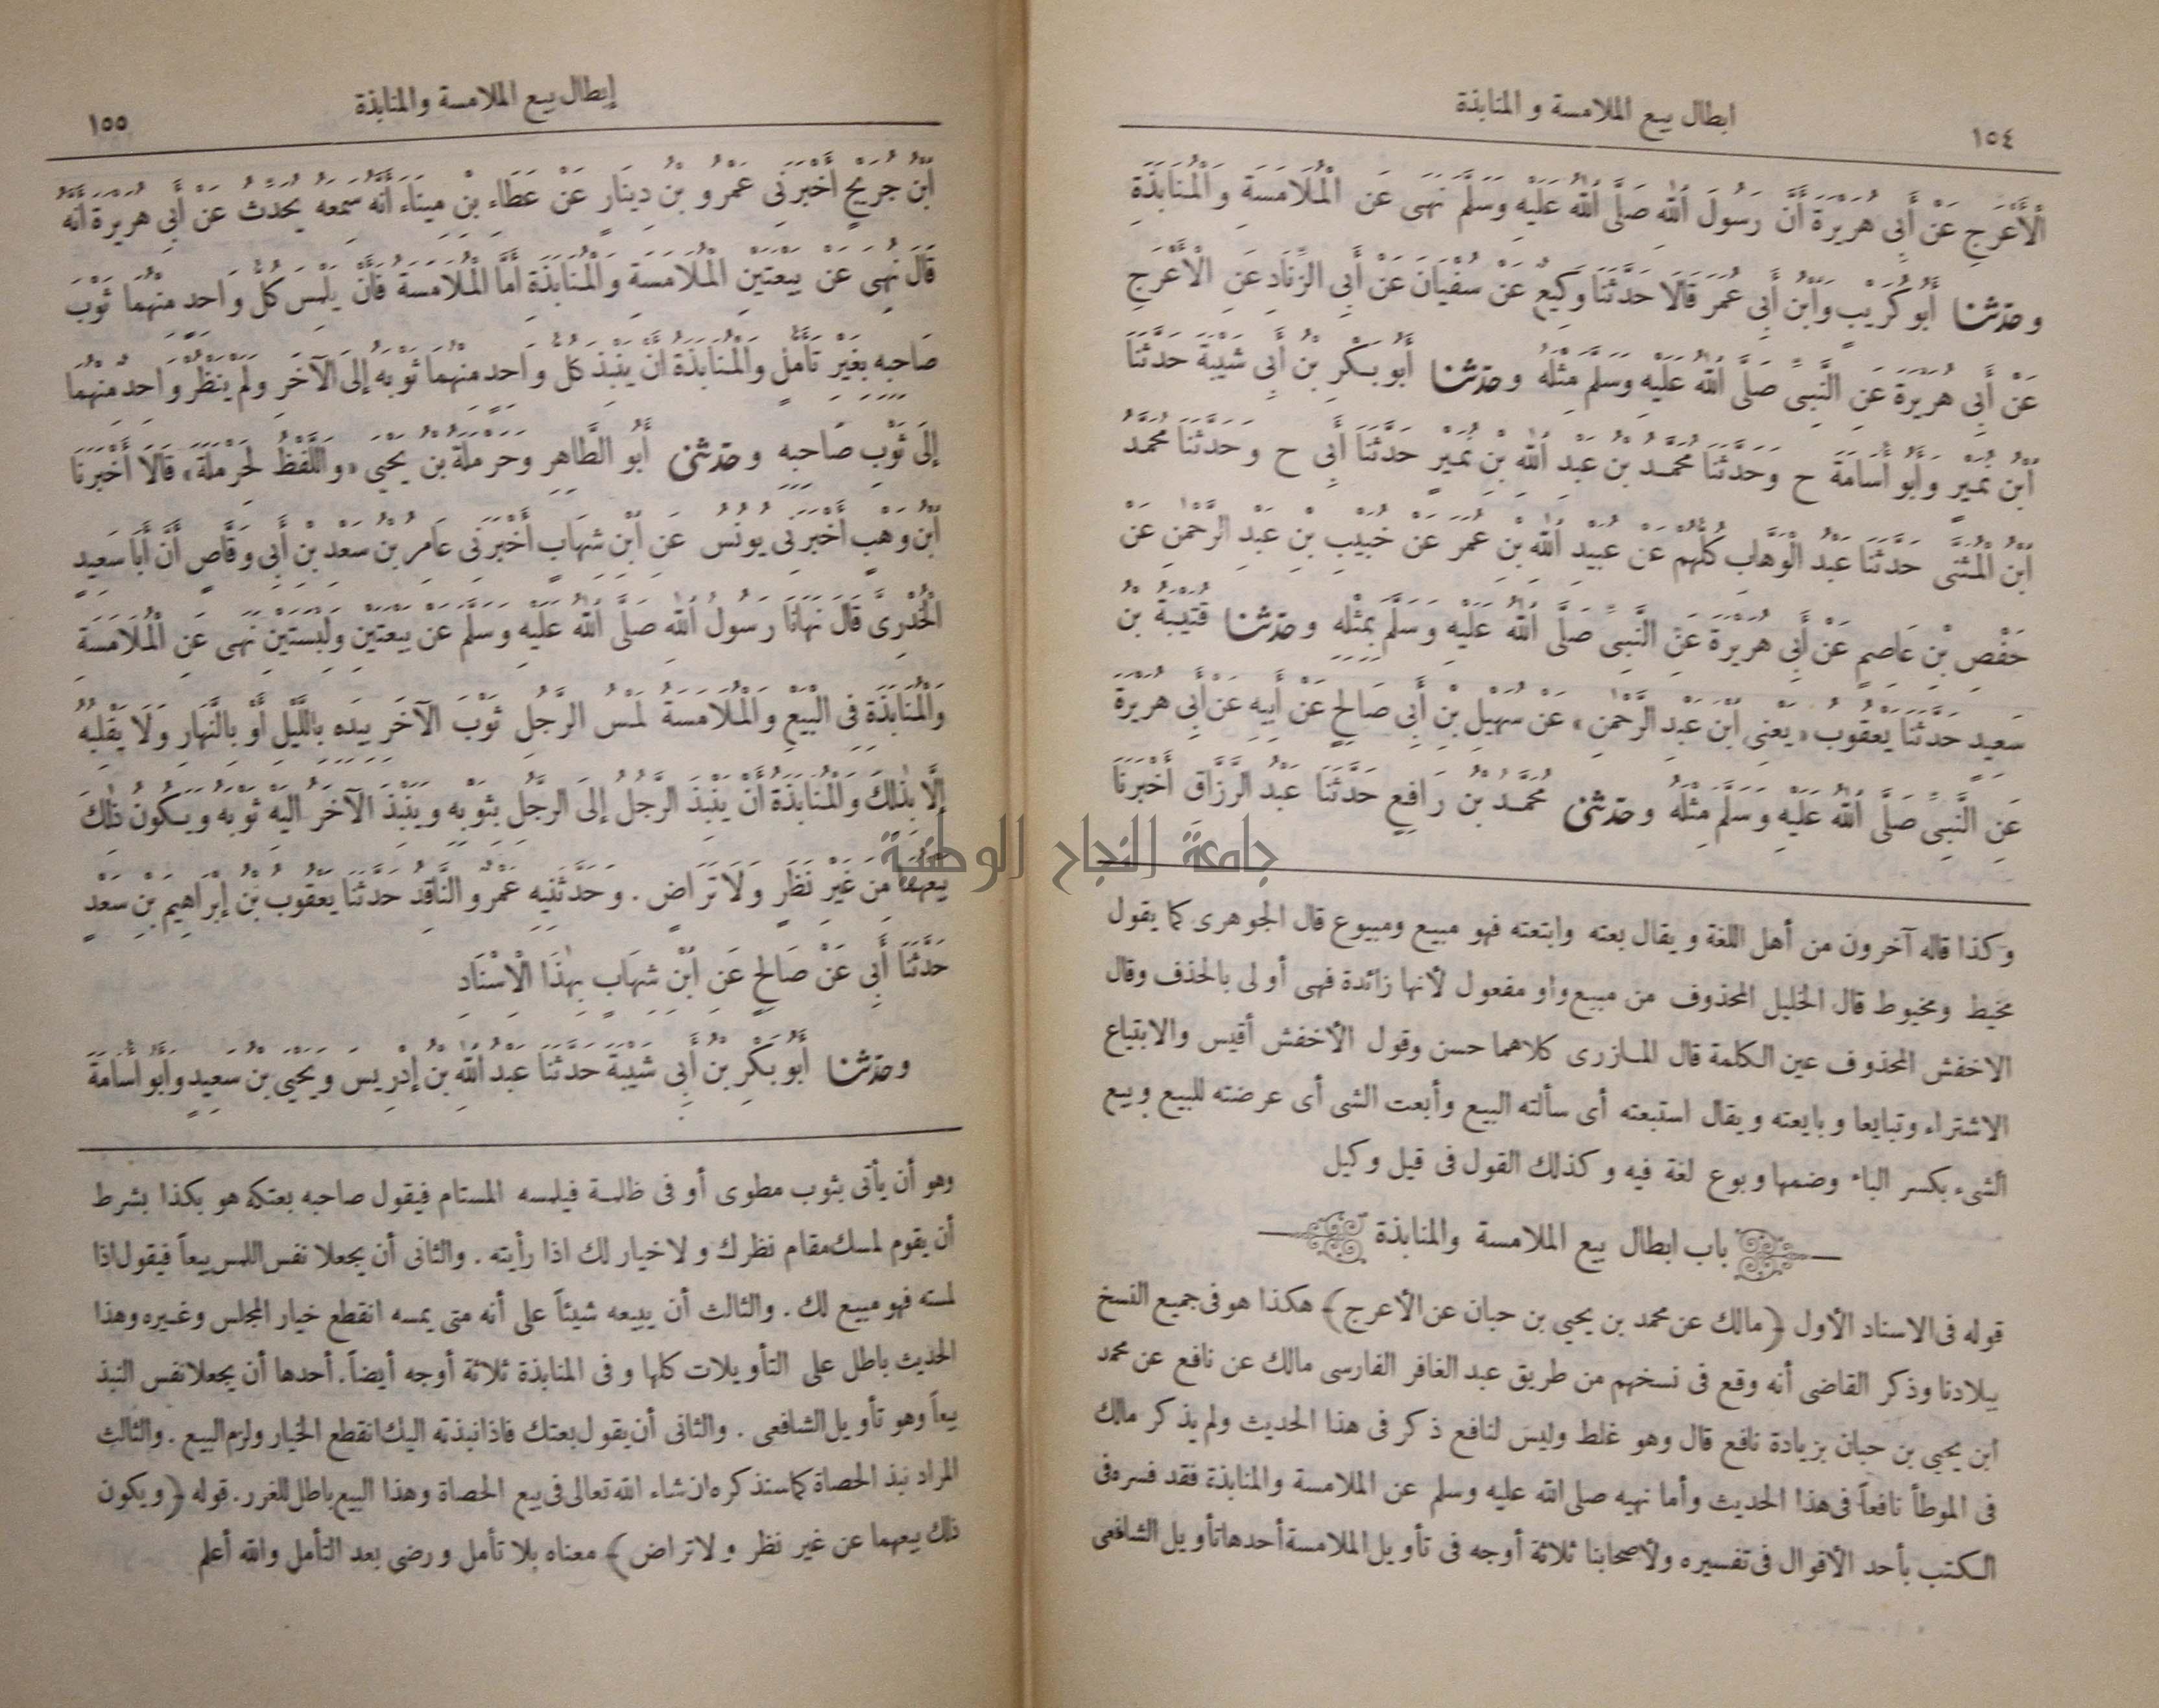 ١٥٤
ابطال بيع الملامسة و المنابذة
الْأَعْرَجِ عَنْ أَبِى هُرَيْرَةَ أَنَّ رَسُولَ اللّٰهِ صَلَّى اللّٰهُ عَلَيْهِ وَسَلَّمَ نَهَى عَنِ الْمُلَامَسَةِ وَالْمُنَابَذَةِ
وحَدَّثَنَا أَبُو كُرَيْبٍ وَابْنُ أَبِى عُمَرَ قَالَا حَدَّثَنَا وَكِيعٌ عَنْ سُفْيَانَ عَنْ أَبِى الزِّنَادِ عَنِ الْأَعْرَجِ
عَنْ أَبِى هُرَيْرَةَ عَنِ النَّبِىِّ صَلَّى اللّٰهُ عَلَيْهِ وَسَلَّمَ مِثْلَهُ وحَدَّثَنَا أَبُو بَكْرِ بْنُ أَبِى شَيْبَةَ حَدَّثَنَا
ابْنُ نُمَيْرٍ وَأَبُو أُسَامَةَ ح وَحَدَّثَنَا مُحَمَّدُ بْنُ عَبْدِ اللّٰهِ بْنِ نُمَيْرٍ حَدَّثَنَا أَبِى ح وَحَدَّثَنَا مُحَمَّدُ
ابْنُ الْمُثَنَّى حَدَّثَنَا عَبْدُ الْوَهَّابِ كُلُّهُمْ عَنْ عُبَيْدِ اللّٰهِ بْنِ عُمَرَ عَنْ خُبَيْبِ بْنِ عَبْدِ الرَّحْمٰنِ عَنْ
حَفْصِ بْنِ عَاصِمٍ عَنْ أَبِى هُرَيْرَةَ عَنِ النَّبِىِّ صَلَّى اللّٰهُ عَلَيْهِ وَسَلَّمَ بِمِثْلِهِ وحَدَّثَنَا قُتَيْبَةُ بْنُ
سَعِيدٍ حَدَّثَنَا يَعْقُوبُ «يَعْنِى ابْنَ عَبْدِ الرَّحْمٰنِ» عَنْ سُهَيْلِ بْنِ أَبِى صَالِحٍ عَنْ أَبِيهِ عَنْ أَبِى هُرَيْرَةَ
عَنِ النَّبِىِّ صَلَّى اللّٰهُ عَلَيْهِ وَسَلَّمَ مِثْلَهُ وحَدَّثَنِى مُحَمَّدُ بْنُ رَافِعٍ حَدَّثَنَا عَبْدُ الرَّزَّاقِ أَخْبَرَنَا
وكذا قاله آخرون من أهل اللغة ويقال بعته وابتعته فهو مبيع ومبيوع قال الجوهرى كما يقول
مخيط ومخيوط قال الخليل المحذوف من مبيع واو مفعول لأنها زائدة فهى أولى بالحذف وقال
الاخفش المحذوف عين الكلمة قال المازرى كلاهما حسن وقول الأخفش أقيس والابتياع
الاشتراء وتبايعا وبايعته ويقال استبعته أى سألته البيع وأبعت الشى أى عرضته للبيع وبيع
الشىء بكسر الباء وضمها وبوع لغة فيه وكذلك القول فى قيل وكيل
باب ابطال بيع الملامسة والمنابذة
قوله فى الاسناد الأول ﴿مالك عن محمد بن يحيى بن حبان عن الأعرج﴾ هكذا هو فى جميع النسخ
ببلادنا وذكر القاضى أنه وقع فى نسخهم من طريق عبد الغافر الفارسى مالك عن نافع عن محمد
ابن يحيى بن حبان بزيادة نافع قال وهو غلط وليس لنافع ذكر فى هذا الحديث ولم يذكر مالك
فى الموطأ نافعاً فى هذا الحديث وأما نهيه صلى الله عليه وسلم عن الملامسة والمنابذة فقد فسره فى
الكتب بأحد الأقوال فى تفسيره ولأصحابنا ثلاثة أوجه فى تأويل الملامسة أحدها تأويل الشافعى
إبطال بيع الملامسة والمنابذة
١٥٥
ابْنُ جُرَيْجٍ أَخْبَرَنِى عَمْرُو بْنُ دِينَارٍ عَنْ عَطَاءِ بْنِ مِينَاءَ أَنَّهُ سَمِعَهُ يُحَدِّثُ عَنْ أَبِى هُرَيْرَةَ أَنَّهُ
قَالَ نُهِىَ عَنْ بَيْعَتَيْنِ الْمُلَامَسَةِ وَالْمُنَابَذَةِ أَمَّا الْمُلَامَسَةُ فَأَنْ يَلْمِسَ كُلُّ وَاحِدٍ مِنْهُمَا ثَوْبَ
صَاحِبِهِ بِغَيْرِ تَأَمُّلٍ وَالْمُنَابَذَةُ أَنْ يَنْبِذَ كُلُّ وَاحِدٍ مِنْهُمَا ثَوْبَهُ إِلَى الْآخَرِ وَلَمْ يَنْظُرْ وَاحِدٌ مِنْهُمَا
إِلَى ثَوْبِ صَاحِبِهِ وحَدَّثَنِى أَبُو الطَّاهِرِ وَحَرْمَلَةُ بْنُ يَحْيَى «وَاللَّفْظُ لِحَرْمَلَةَ» قَالَا أَخْبَرَنَا
ابْنُ وَهْبٍ أَخْبَرَنِى يُونُسُ عَنِ ابْنِ شِهَابٍ أَخْبَرَنِى عَامِرُ بْنُ سَعْدِ بْنِ أَبِى وَقَّاصٍ أَنَّ أَبَا سَعِيدٍ
الْخُدْرِىَّ قَالَ نَهَانَا رَسُولُ اللّٰهِ صَلَّى اللّٰهُ عَلَيْهِ وَسَلَّمَ عَنْ بَيْعَتَيْنِ وَلِبْسَتَيْنِ نَهَى عَنِ الْمُلَامَسَةِ
وَالْمُنَابَذَةِ فِى الْبَيْعِ وَالْمُلَامَسَةُ لَمْسُ الرَّجُلِ ثَوْبَ الْآخَرِ بِيَدِهِ بِاللَّيْلِ أَوْ بِالنَّهَارِ وَلَا يَقْلِبُهُ
إِلَّا بِذٰلِكَ وَالْمُنَابَذَةُ أَنْ يَنْبِذَ الرَّجُلُ إِلَى الرَّجُلِ بِثَوْبِهِ وَيَنْبِذَ الْآخَرُ الَيْهِ ثَوْبَهُ وَيَكُونُ ذٰلِكَ
بَيْعَهُمَا مِنْ غَيْرِ نَظَرٍ وَلَا تَرَاضٍ . وَحَدَّثَنِيهِ عَمْرٌو النَّاقِدُ حَدَّثَنَا يَعْقُوبُ بْنُ إِبْرَاهِيمَ بْنِ سَعْدٍ
حَدَّثَنَا أَبِى عَنْ صَالِحٍ عَنِ ابْنِ شِهَابٍ بِهٰذَا الْاِسْنَادِ
وحَدَّثَنَا أَبُو بَكْرِ بْنُ أَبِى شَيْبَةَ حَدَّثَنَا عَبْدُ اللّٰهِ بْنُ إِدْرِيسَ وَيَحْيَى بْنُ سَعِيدٍ وَأَبُو أُسَامَةَ
وهو أن يأتى بثوب مطوى أو فى ظلمة فيلمسه المستام فيقول صاحبه بعتكه هو بكذا بشرط
أن يقوم لمسك مقام نظرك ولا خيار لك اذا رأيته . والثانى أن يجعلا نفس اللمس بيعاً فيقول اذا
لمسته فهو مبيع لك . والثالث أن يبيعه شيئاً على أنه متى يمسه انقطع خيار المجلس وغيره وهذا
الحديث باطل على التأويلات كلها وفى المنابذة ثلاثة أوجه أيضاً . أحدها أن يجعلا نفس النبذ
بيعاً وهو تأويل الشافعى . والثانى أن يقول بعتك فاذا نبذته اليك انقطع الخيار ولزم البيع . والثالث
المراد نبذ الحصاة كما سنذكره ان شاء الله تعالى فى بيع الحصاة وهذا البيع باطل للغرر . قوله ﴿ويكون
ذلك بيعهما عن غير نظر ولا تراض﴾ معناه بلا تأمل ورضى بعد التأمل والله أعلم
جامعة النجاح الوطنية